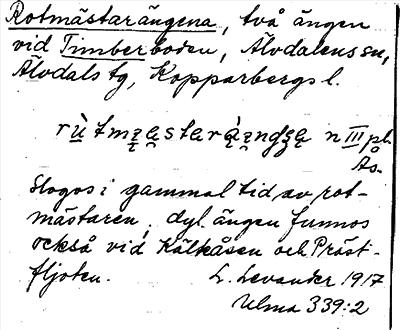 Rotmästarängena, två ängen
vid Timberboden, Älvdalens sn,
Älvdals tg, Kopparbergs l.
n III pl.
Ås.
Slogos i gammal tid av rot-
mästaren, dyl. ängen funnos
också vid Kälkåsen och Präst-
fljoten. L. Levander 1917
Ulma 339:2